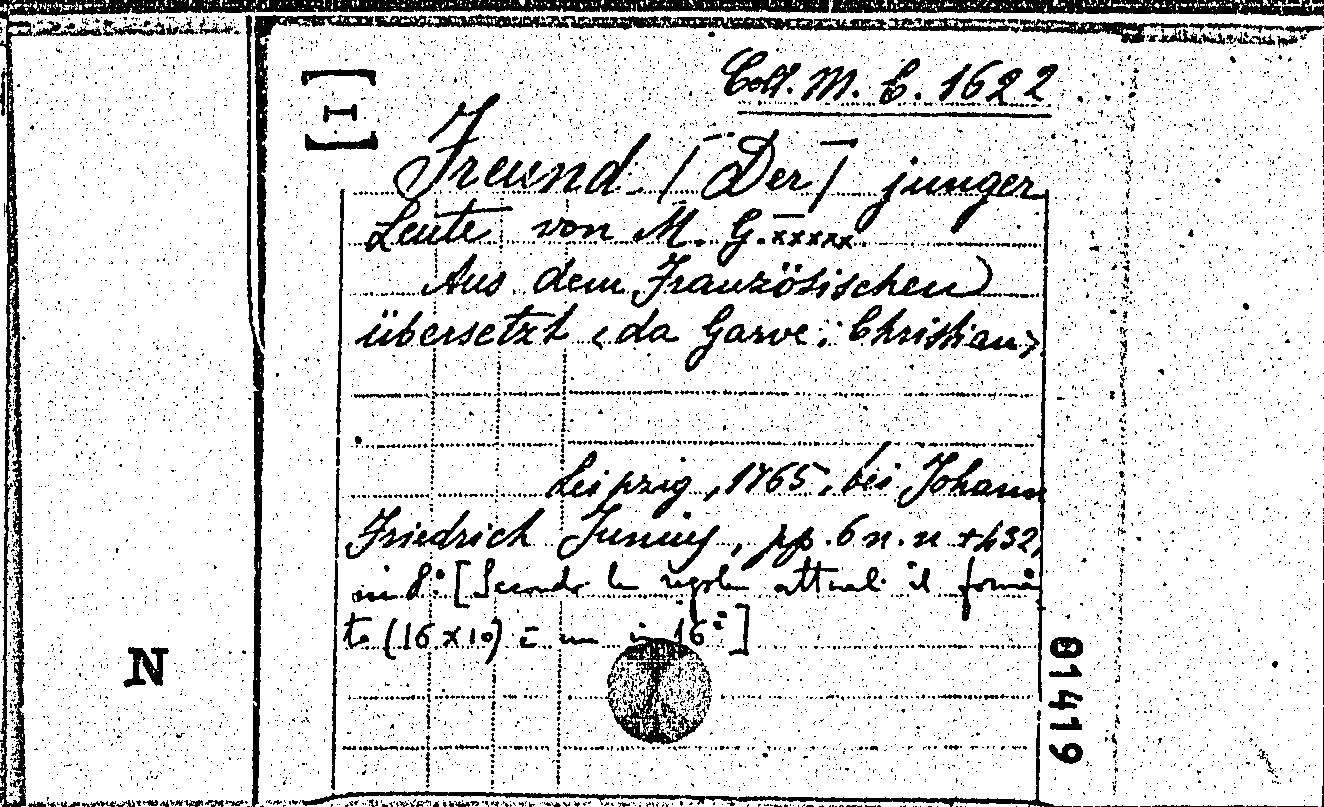 Coll. M. C. 1622
[I]
Freund [Der] junger
Leute von M. G.xxxxx.
Aus dem Französischen
übersetzt <da Garve: Christian>
Leipzig, 1765, bei Johann
Friedrich Junius, pp. 6 n.n +432,
in 8.º [Secondo le regole attuali il forma
to (16x10) è un in 16º]
N
01419